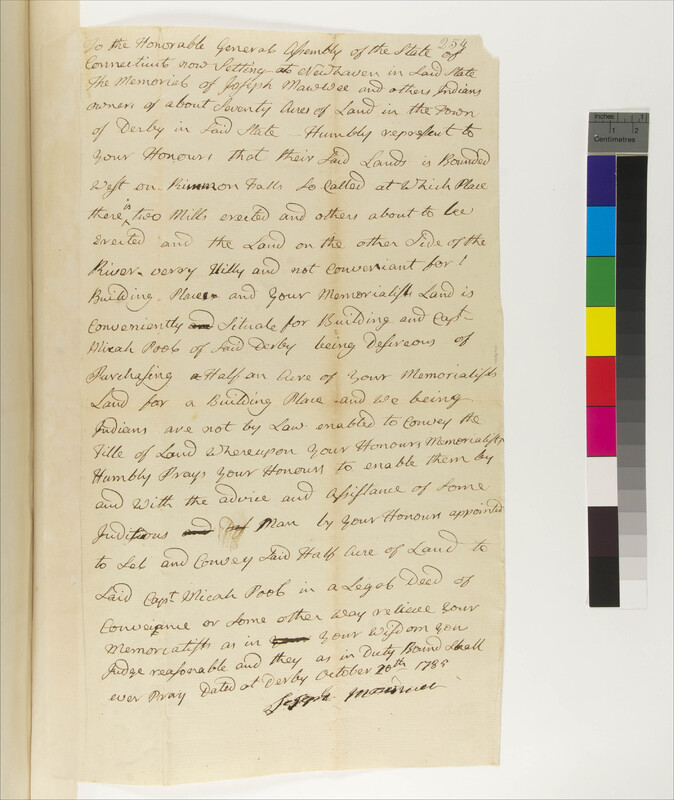 254
To the Honorable General Assembly of the State of
Connecticut now Setting at Newhaven in Said State
The Memorial of Joseph Mawwee and others Indians
owners of about Seventy Acres of Land in the Town
of Derby in Said State – Humbly represent to
Your Honours that their Said Lands is Bounded
West on Rimmon Falls So Called at Which Place
there is two Mills erected and others about to be
Erected and the Land on the other Side of the
River verry Hilly and not Conveniant for
Building Place and Your Memorialists Land is
Conveniently and Situate for Building and Capt
Micah Pool of Said Derby being Desireous of
Purchasing a Half an Acre of Your Memorialists
Land for a Building Place and we being
Indians are not by Law enabled to Convey the
Title of Land Whereupon Your Honours Memorialists
Humbly Prays Your Honours to enable them by
and With the advice and Assistance of Some
Juditious and Man by Your Honours appointed
to Sel and Convey Said Half Acre of Land to
Said Capt Micah Pool in a Legal Deed of
Conveiance or Some other way relieve Your
Memorialists as in Your Wisdom You
Judge reasonable and they as in Duty Bound Shall
ever Pray Dated at Derby October 20th
Joseph
inches 1
1 2
Centimetres